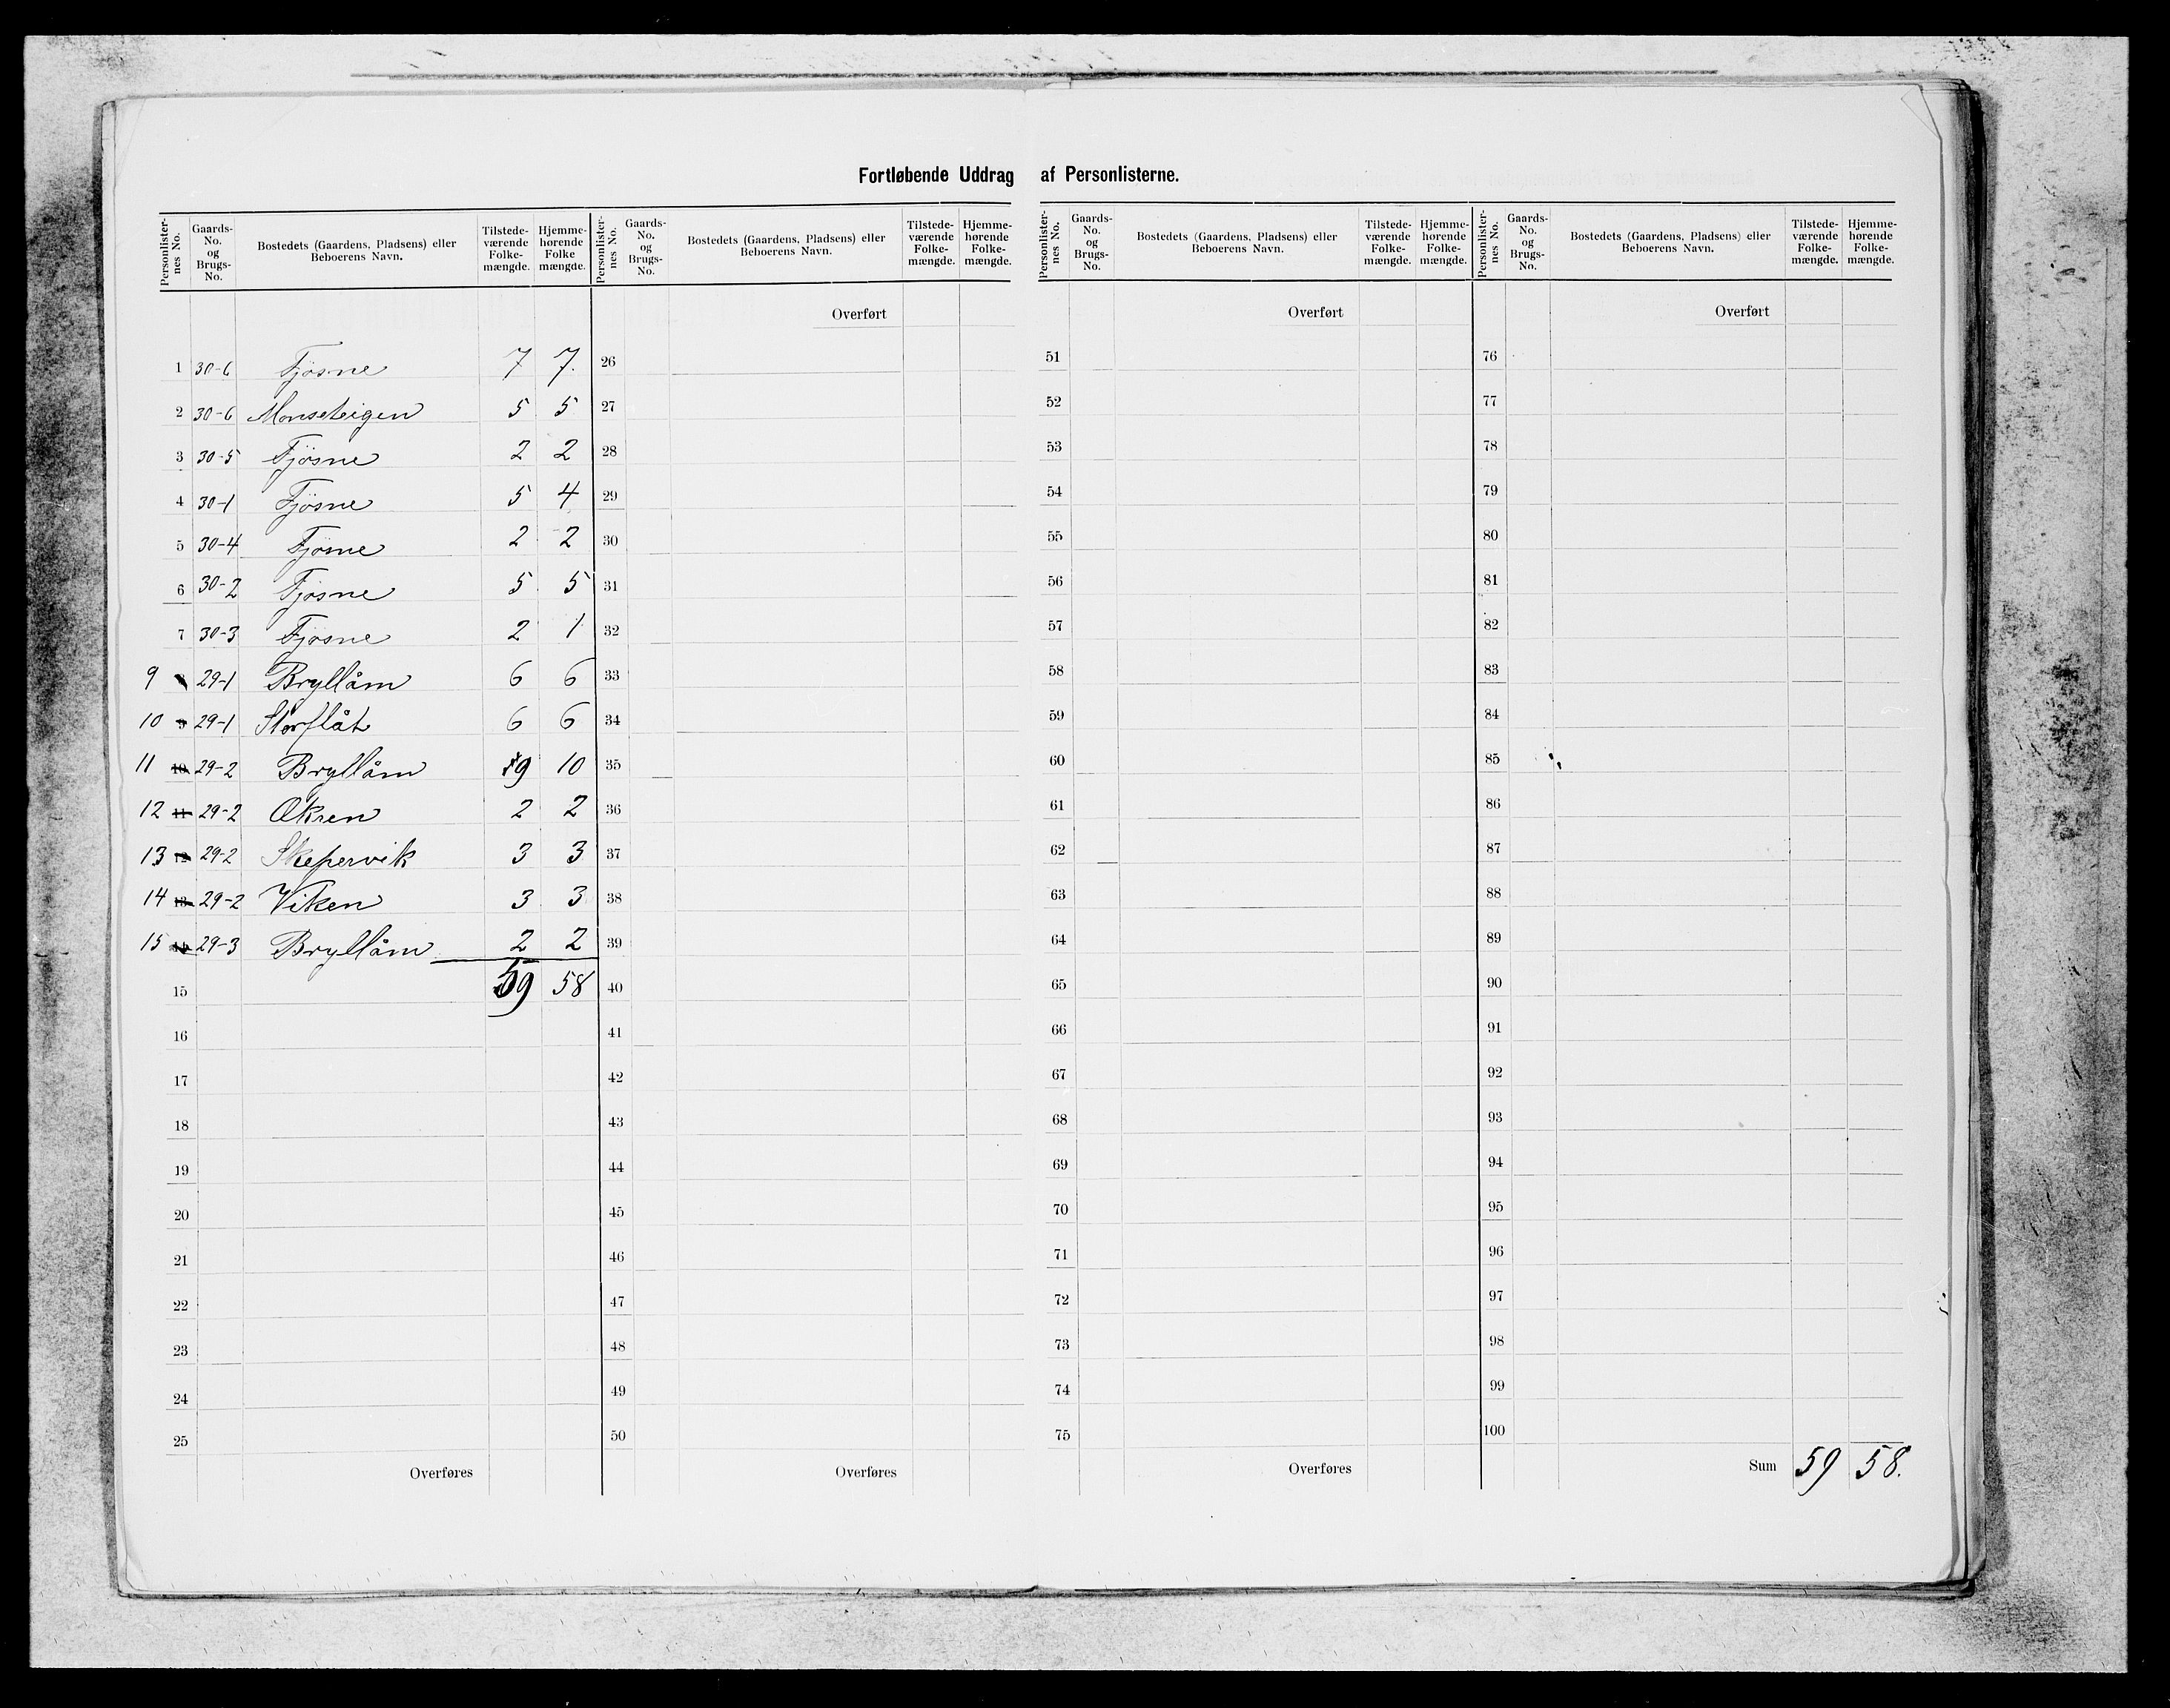 Fortløbende Uddrag af Personlisterne.
Personlister-nes No. Gaards-No. og Brugs-No. Bostedets (Gaardens, Pladsens) eller Beboerens Navn. Tilstede-værende Folke-mængde. Hjemme-hørende Folke mængde. Personlister-nes No. Gaards-No. og Brugs-No. Bostedets (Gaardens, Pladsens) eller Beboerens Navn. Tilstede-værende Folke-mængde. Hjemme-hørende Folke-mængde. Personlister-nes No. Gaards-No. og Brugs-No. Bostedets (Gaardens, Pladsens) eller Beboerens Navn. Tilstede-værende Folke-mængde. Hjemme-hørende Folke-mængde. Personlister-nes No. Gaards-No. og Brugs-No. Bostedets (Gaardens, Pladsens) eller Beboerens Navn. Tilstede-værende Folke-mængde. Hjemme-hørende Folke-mængde.
Overført Overført Overført
1 30-6 Fjøsne 7 7. 26 51 76
2 30-6 Monseteigen 5 5 27 52 77
3 30-5 Fjøsne 2 2 28 53 78
4 30-1 Fjøsne 5 4 29 54 79
5 30-4 Fjøsne 2 2 30 55 80
6 30-2 Fjøsne 5 5 31 56 81
7 30-3 Fjøsne 2 1 32 57 82
9 29-1 Bryllåm 6 6 33 58 83
10 9 29-1 Storflåt 6 6 34 59 84
11 10 29-2 Bryllåm 9 10 35 60 85
12 11 29-2 Økren 2 2 36 61 86
13 12 29-2 Skepervik 3 3 37 62 87
14 13 29-2 Viken 3 3 38 63 88
15 14 29-3 Bryllåm 2 2 39 64 89
15 59 58 40 65 90
16 41 66 91
17 42 67 92
18 43 68 93
19 44 69 94
20 45 70 95
21 46 71 96
22 47 72 97
23 48 73 98
24 49 74 99
25 50 75 100
Overføres Overføres Overføres Sum 59 58.